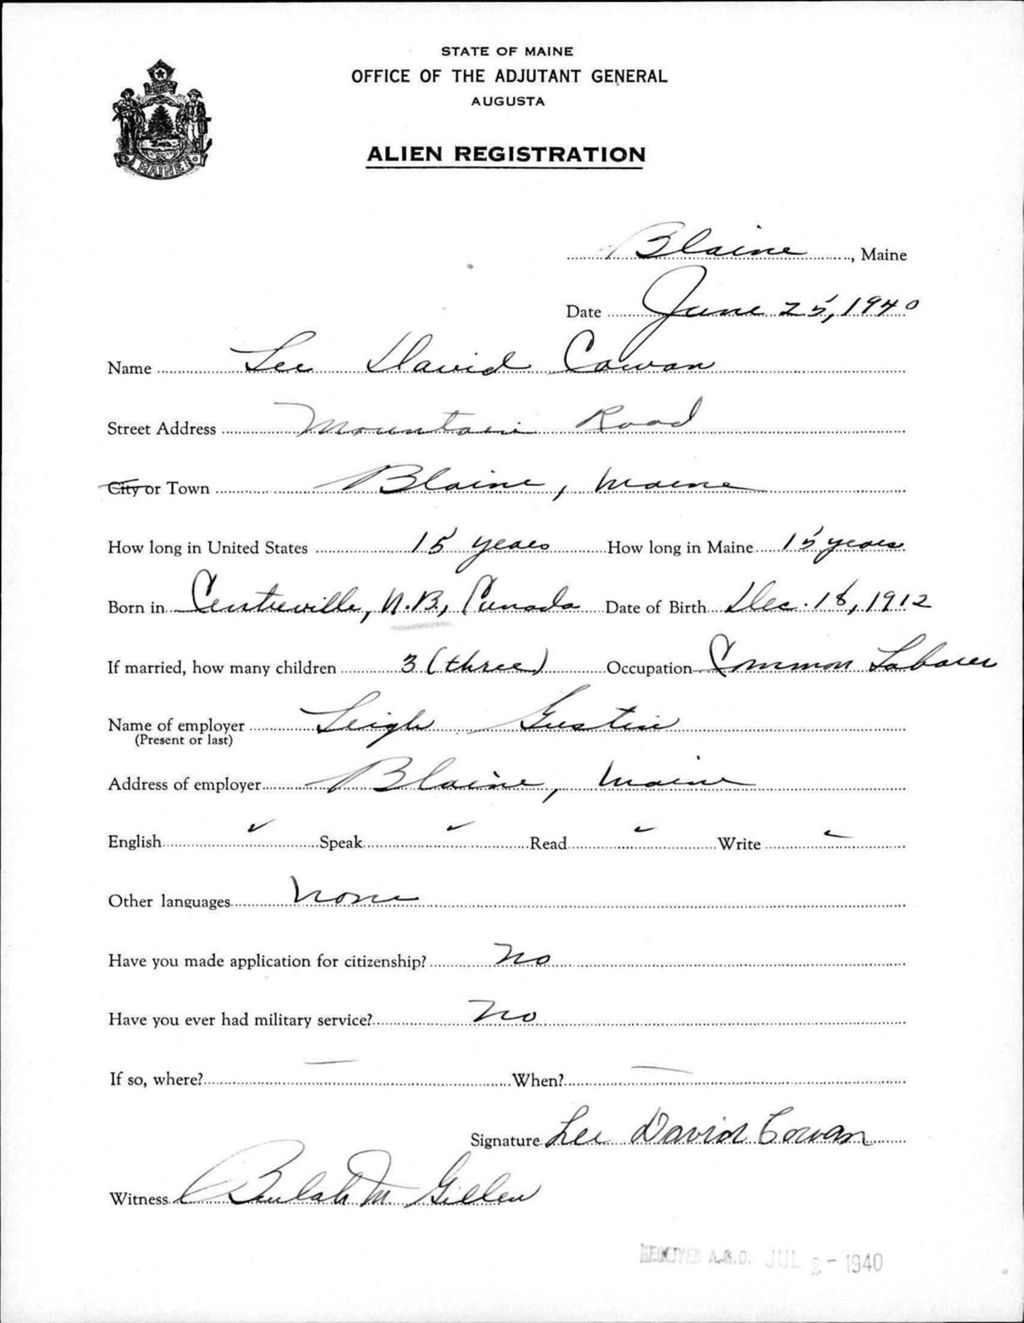 STATE OF MAINE
OFFICE OF THE ADJUTANT GENERAL
AUGUSTA
ALIEN REGISTRATION
MAINE
Blaine, Maine
Date June 25, 1940
Name Lee David Cowan
Street Address Mountain Road
City or Town Blaine, Maine
How long in United States 15 years How long in Maine 15 years
Born in Centreville, N.B., Canada Date of Birth Dec. 18, 1912
If married, how many children 3 (three) Occupation Common Laborer
Name of employer Leigh Gustin
(Present or last)
Address of employer Blaine, Maine
English ✓ Speak ✓ Read ✓ Write ✓
Other languages none
Have you made application for citizenship? No
Have you ever had military service? No
If so, where? — When? —
Signature Lee David Cowan
Witness Beulah M. Gillen
RECEIVED A.G.O. JUL 2 - 1940